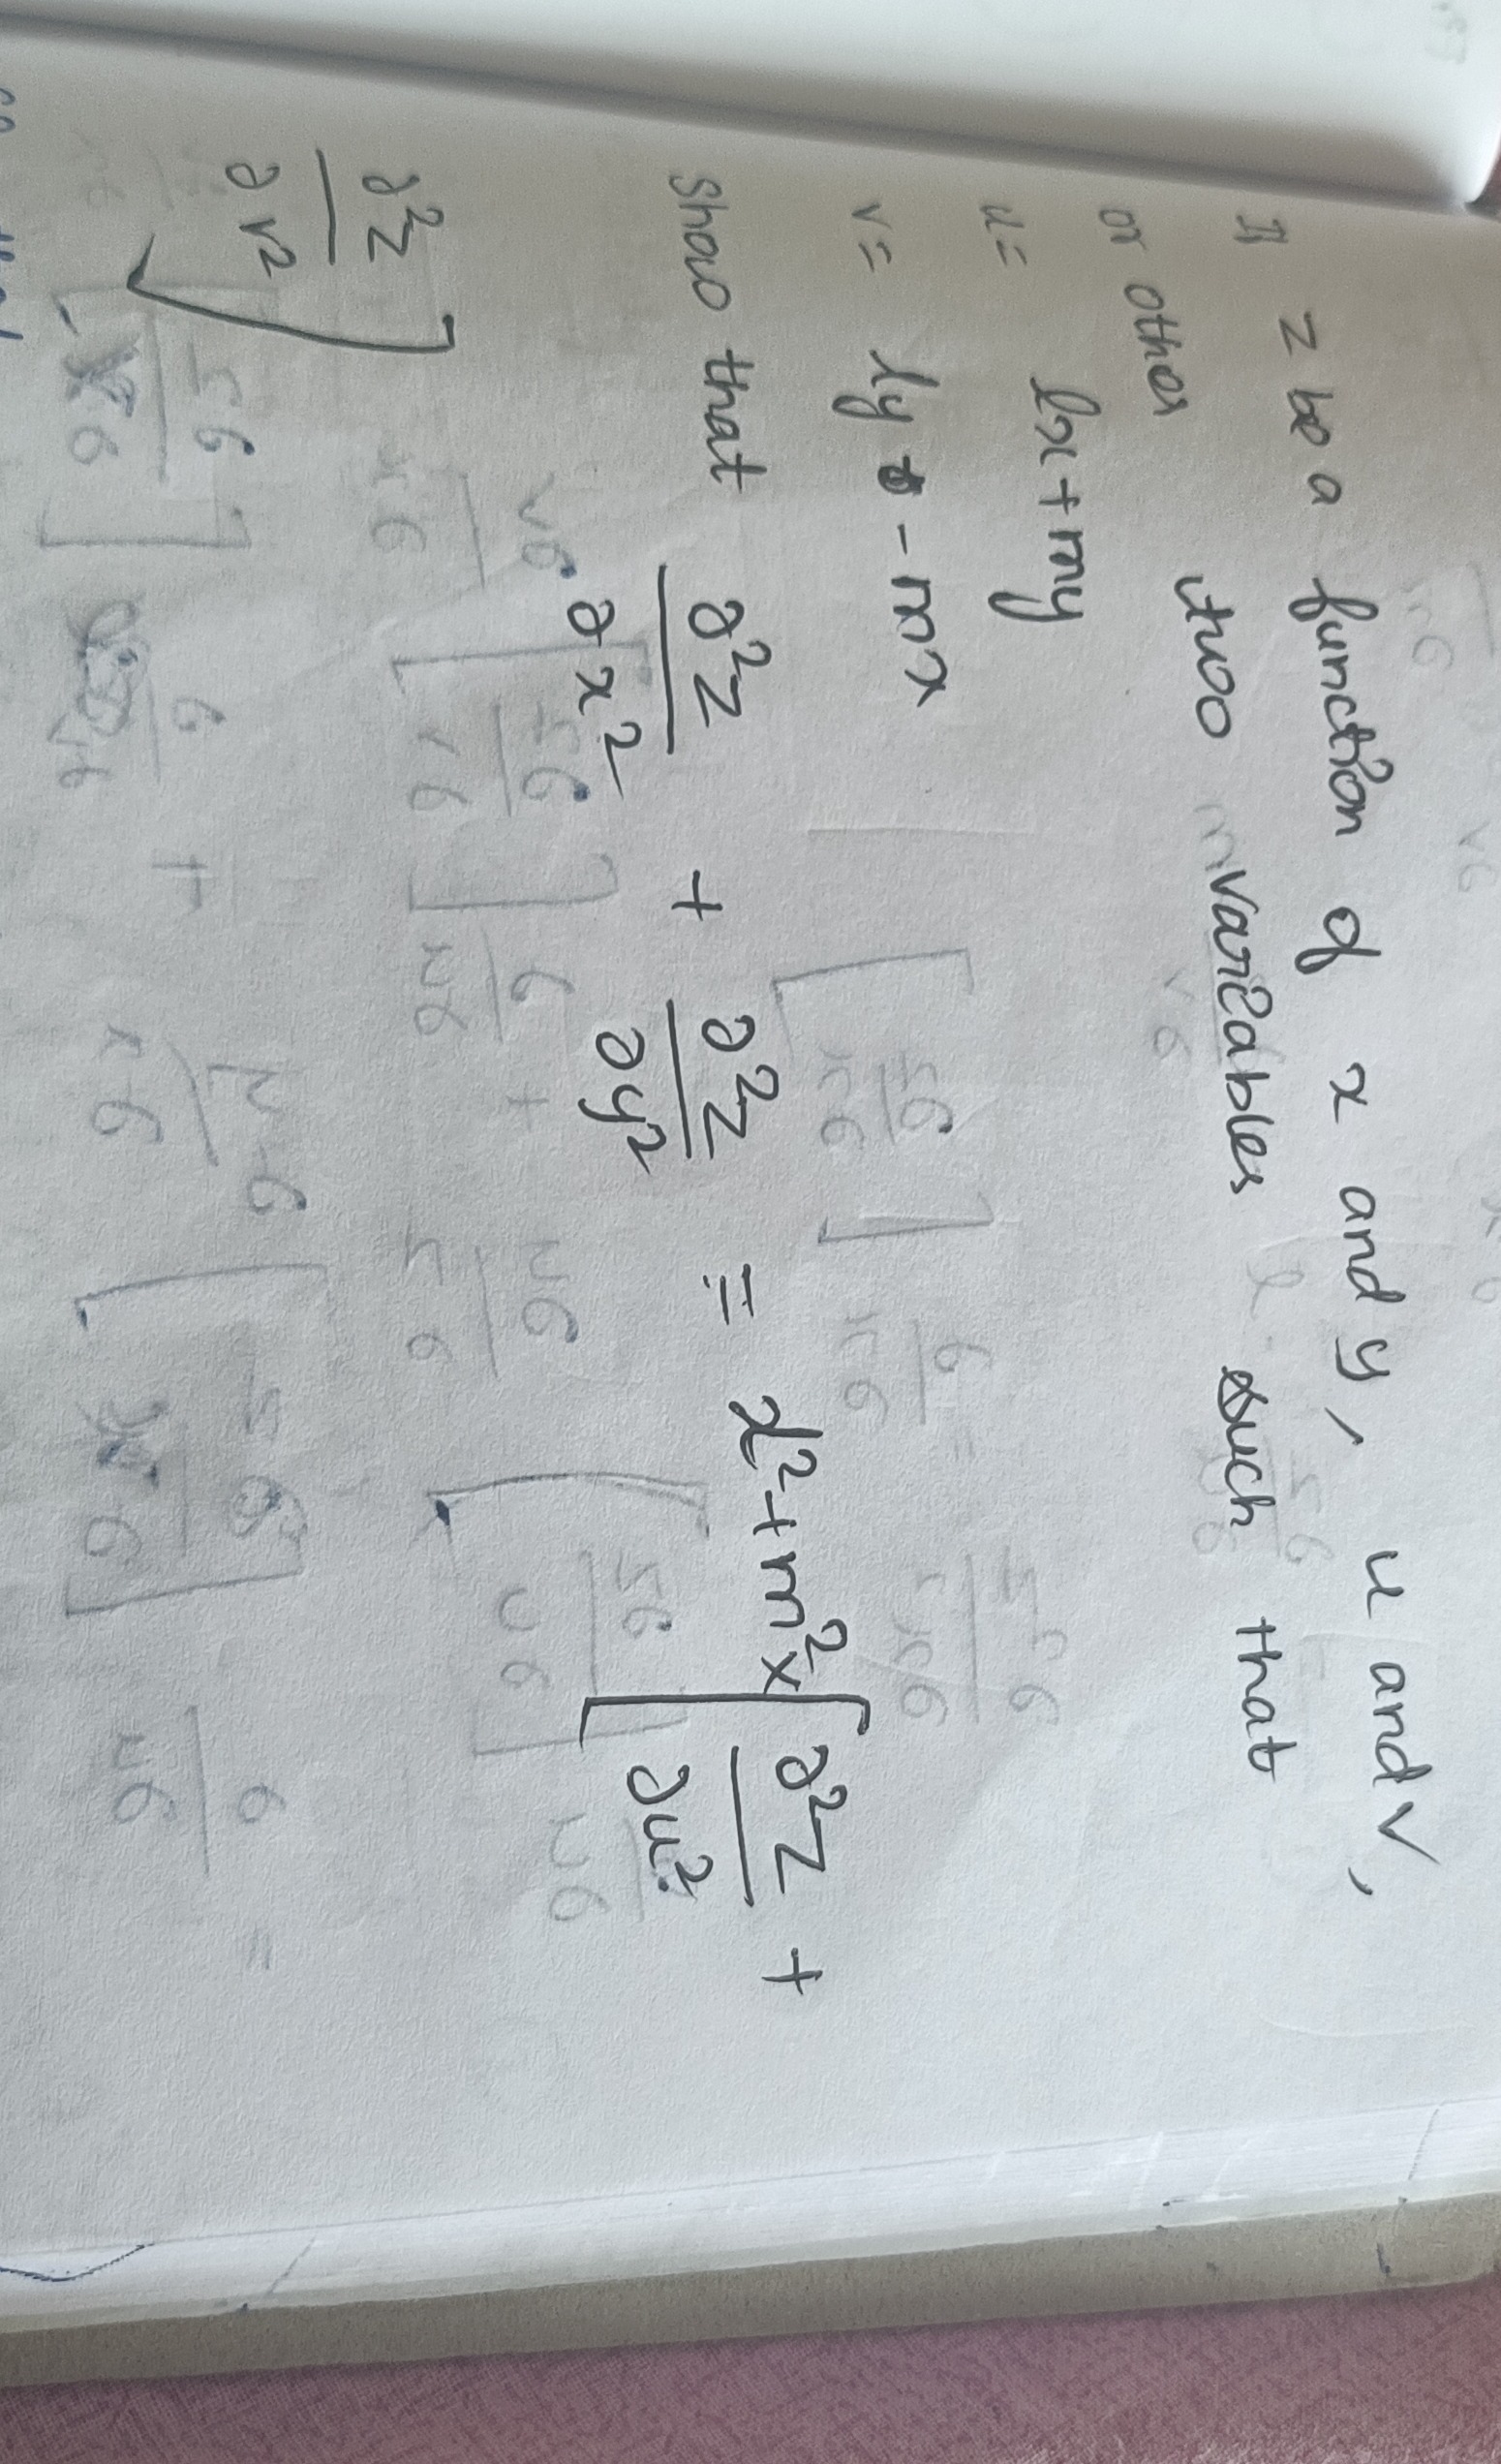 If z be a function of x and y, u and v,
or other two variables such that
u = lx + my
v = ly - mx
show that ∂²z/∂x² + ∂²z/∂y² = l² + m² x [∂²z/∂u² +
∂²z/∂v²]